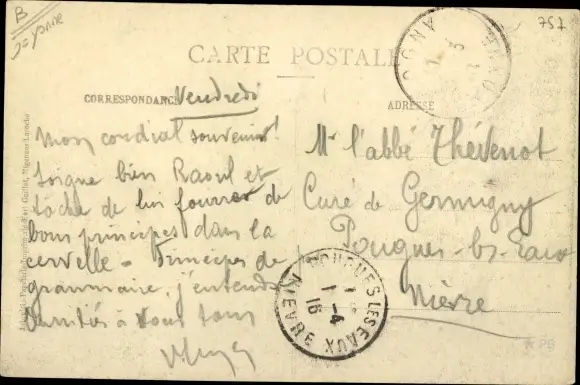 B
Yonne
757
CARTE POSTALE
CORRESPONDANCE
Vendredi
ADRESSE
Mon cordial souvenir!
Soigne bien Raoul et
tâche de lui fourrer de
bons principes dans la
cervelle - Principes de
grammaire, j'entends
Amitiés à vous tous
Mr l'abbé Thévenot
Curé de Germigny
Pougues-les-Eaux
Nièvre
POUGUES-LES-EAUX
1-4
16
NIEVRE